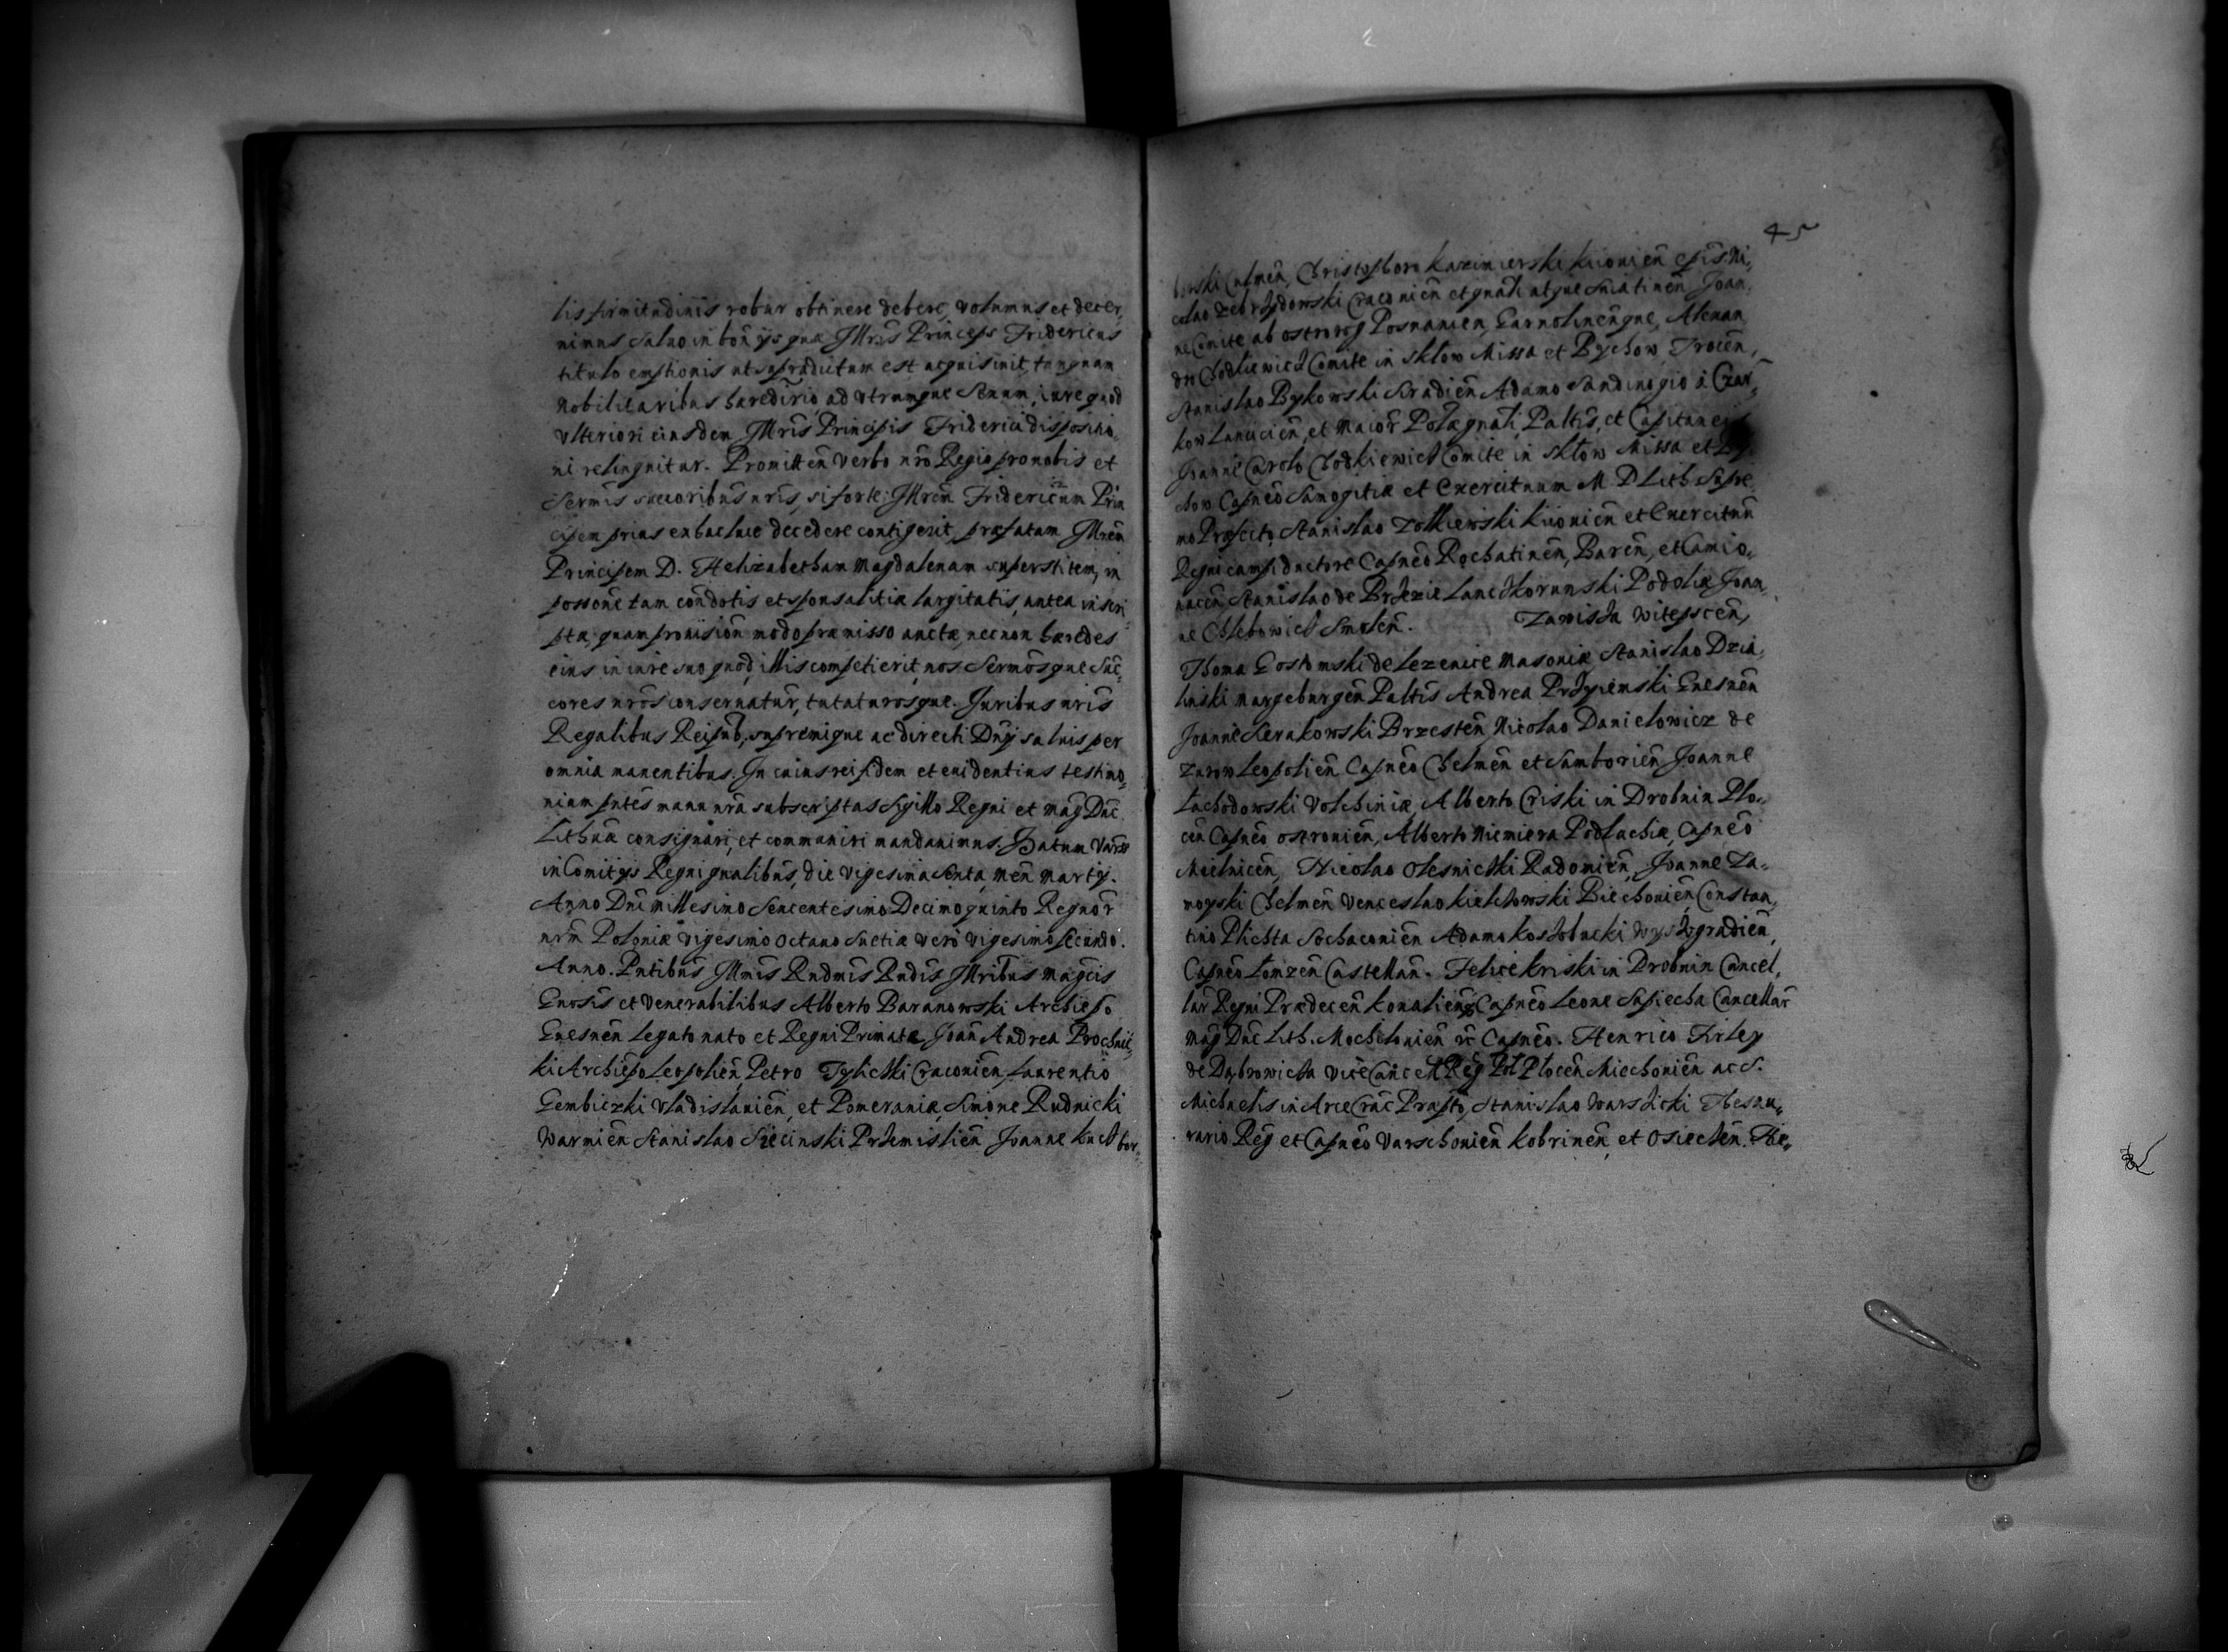 lis firmitudinis robur obtinere debere, volumus et decer,
nimus salvo in bon̄ ijs quæ Illris Princeps Fridericus
titulo emptionis ut supradictum est acquisivit, tanquam
Nobilitaribus hæredirio, ad Vtrumque Sexum, iure quod
Vlteriori eiusdem Illris Principis Friderici dispositio,
ni relinquitur. Promitten̄ Verbo nr̄o Regio pro nobis et
Sermis succoribus nris, si forte Illrem Fridericum Prin
cipem prius ex hac luce decedere contigerit, præfatam Illrem
Principem D. Helizabetham Magdalenam superstitem, in
posson̄e tam con̄dotis et sponsalitia largitatis, antea inscri
ptæ, quam provision̄ modo præmisso auctæ, nec non hæredes
eius in iure suo quod illis competierit, nos Sermosque Suc̄,
cores nr̄os conservatur̄, tutaturosque. Juribus nris
Regalibus Reipub, supremique ac directi Dnij salvis per
omnia manentibus. In cuius rei fidem et evidentius testimo,
nium pntes manu nra subscriptas Sigillo Regni et Mag Duc̄
Lithuā consignari, et communiri mandavimus. Datum Vars
in Comitijs Regni gnalibus, die Vigesima Sexta, Men̄ Martij.
Anno Dni Millesimo Sexcentesimo Decimoquinto Regnor̄
nrm Poloniæ vigesimo octavo Suetiæ vero vigesimo secundo.
Anno. Pntibus Illmis Rndmis Rndis Illribus Magcis
Gnosis et Venerabilibus Alberto Baranowski Archiepo
Gnesnen̄ Legato nato et Regni Primate, Joan̄ Andrea Prochnic̄,
ki Archiepo Leopolien̄, Petro Tylicki Cracovien̄, Laurentio
Gembiczki Vladislavien̄, et Pomeraniæ Simone Rudnicki
Warmien̄ Stanislao Siecinski Przemislien̄ Joanne Kuczbor,
45
borski Culmen̄, Christophoro Kazimierski Kiiovien̄ epis. Ni,
colao Zebrzydowski Cracovien̄ et gnāli atque Sniatinen̄ Joan,
ne Comite ab ostrorog Posnanien, Garnolinen̄que, Alexan
dro Chodkiewicz Comite in Skłow Missa et Bychow, Trocen̄,
Stanislao Bykowski Siradien̄ Adamo Sandivogio à Czar,
kow Lancicien̄, et Maior̄ Polæ gnali, Paltis, et Capitaneis
Joanne Carolo Chodkiewicz Comite in Skłow Missa et By,
chow Capneo Samogitiæ et Exercituum M D Lith Supre,
mo Præfecto, Stanislao Zolkiewski Kiiovien̄ et Exercituū
Regni campiductore Capneo Rochatinen̄, Baren̄, et Camio,
nacen̄ Stanislao de Brzezie Lanczkorunski Podoliæ Joan,
ne Chlebowicz Smolen̄. Zawisza Witepscen̄,
Thoma Gostomski de Lezenice Masoviæ Stanislao Dzia,
linski Margeburgen̄ Paltis Andrea Przyiemski Gnesnen̄
Joanne Sierakowski Brzesten̄ Nicolao Danielowicz de
Zurow Leopolien̄ Capneo Chelmen̄ et Samborien̄ Joanne
Lachodowski Volchiniæ Alberto Criski in Drobnin Plo,
cen̄ Capneo ostrovien̄, Alberto Niemiera Podlachiæ, Capneo
Mielnicen̄, Nicolao Olesnicki Radomien̄, Joanne Za,
moyski Chelmen̄ Venceslao Kielczowski Biechovien̄ Constan,
tino Plichta Sochaconien̄ Adamo Koszobucki Wyszogradien̄,
Capneo Lomzen̄ Castellan̄. Felice Kriski in Drobnin Cancel,
lar̄ Regni Prædecen̄ Konalien̄ Capneo Leone Sapiecha Cancellar̄
Mag Duc̄ Lith. Mochilovien̄ Capneo. Henrico Firley
de Dąbrowicza ViceCancell Reg Pol Plocen̄ Miechovien̄ ac S.
Michaelis in Arce Crac̄ Præpto, Stanislao Warszicki Thesau,
rario Reg et Capneo Varschovien̄ Kobrinen̄, et Osiechen̄. Hie,